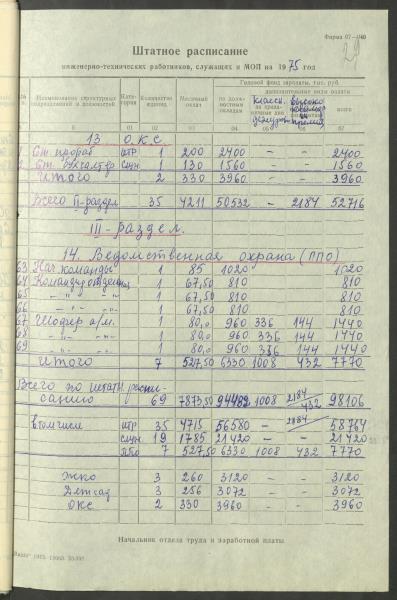 Форма 07-
29
Штатное расписание
инженерно-технических работников, служащих и МОП на 1975 год
Годовой фонд зарплаты, тыс. руб.
Наименование структурных подразделений и должностей
Категория
Количество единиц
Месячный оклад
по должностным окладам
дополнительные виды оплаты
классн.
высоко
премия
всего
13 О.К.С.
1 Ст. прораб ИТР 1 200 2400 — — 2400
2 Ст. бухгалтер служ 1 130 1560 — — 1560
Итого 2 330 3960 3960
Всего II-раздел 35 4211 50532 — 2184 52716
III-раздел.
14. Ведомственная охрана (ППО)
63 Нач. команды 1 85 1020 1020
64 Командир отделения 1 67,50 810 810
65 —"— —"— 1 67,50 810 810
66 —"— —"— 1 67,50 810 810
67 Шофер а/м. 1 80,0 960 336 144 1440
68 —"— —"— 1 80,0 960 336 144 1440
69 —"— —"— 1 80,0 960 336 144 1440
Итого 7 527,50 6330 1008 432 7770
Всего по штатн. расписанию 69 7873,50 94482 1008 2184/432 98106
в том числе ИТР 35 4715 56580 — 2184 58764
служ 19 1785 21420 — — 21420
ППО 7 527,50 6330 1008 432 7770
ЖКО 3 260 3120 3120
Детсад 3 256 3072 3072
ОКС 2 330 3960 3960
Начальник отдела труда и заработной платы